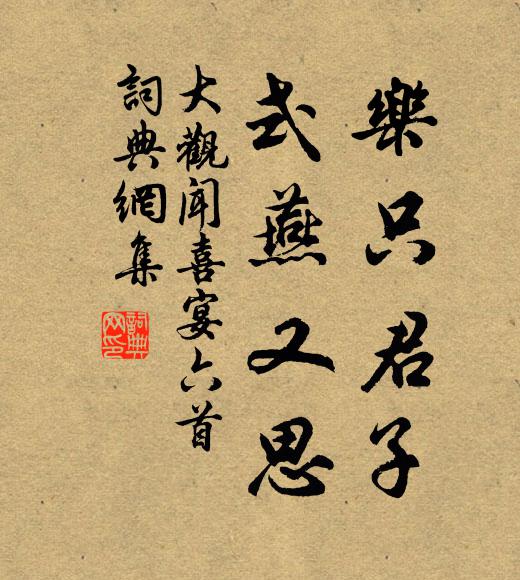 樂只君子
式燕又思
大觀聞喜宴六首
詞典網集
詞典
网印